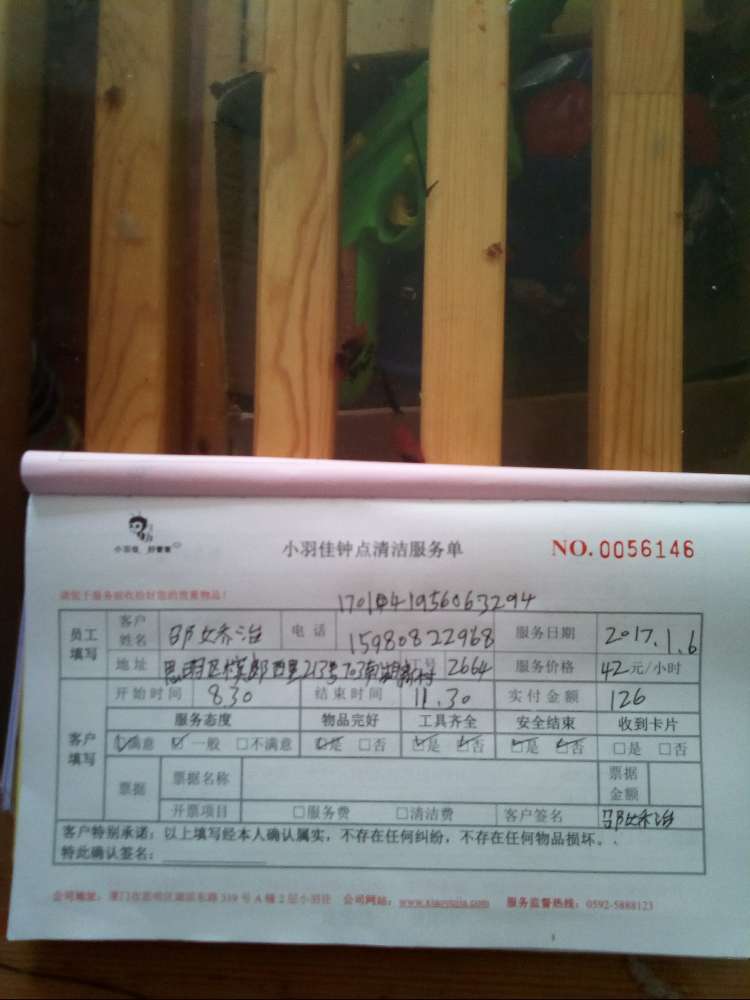 小羽佳 好管家
小羽佳钟点清洁服务单 NO. 0056146
请您于服务前收拾好您的贵重物品!
1701041956063294
员工填写 客户姓名 邵乔治 电话 15980822968 服务日期 2017.1.6
地址 思明区 213号703 工号 2664 服务价格 42元/小时
客户填写 开始时间 8.30 结束时间 11.30 实付金额 126
服务态度 物品完好 工具齐全 安全结束 收到卡片
☑满意 ☑一般 □不满意 ☑是 □否 ☑是 ☑否 ☑是 ☑否 □是 □否
票据 票据名称 票据金额
开票项目 □服务费 □清洁费 客户签名 邵乔治
客户特别承诺:以上填写经本人确认属实,不存在任何纠纷,不存在任何物品损坏。
特此确认签名:
公司地址:厦门市思明区湖滨东路339号A幢2层小羽佳 公司网站: 服务监督热线:0592-5888123